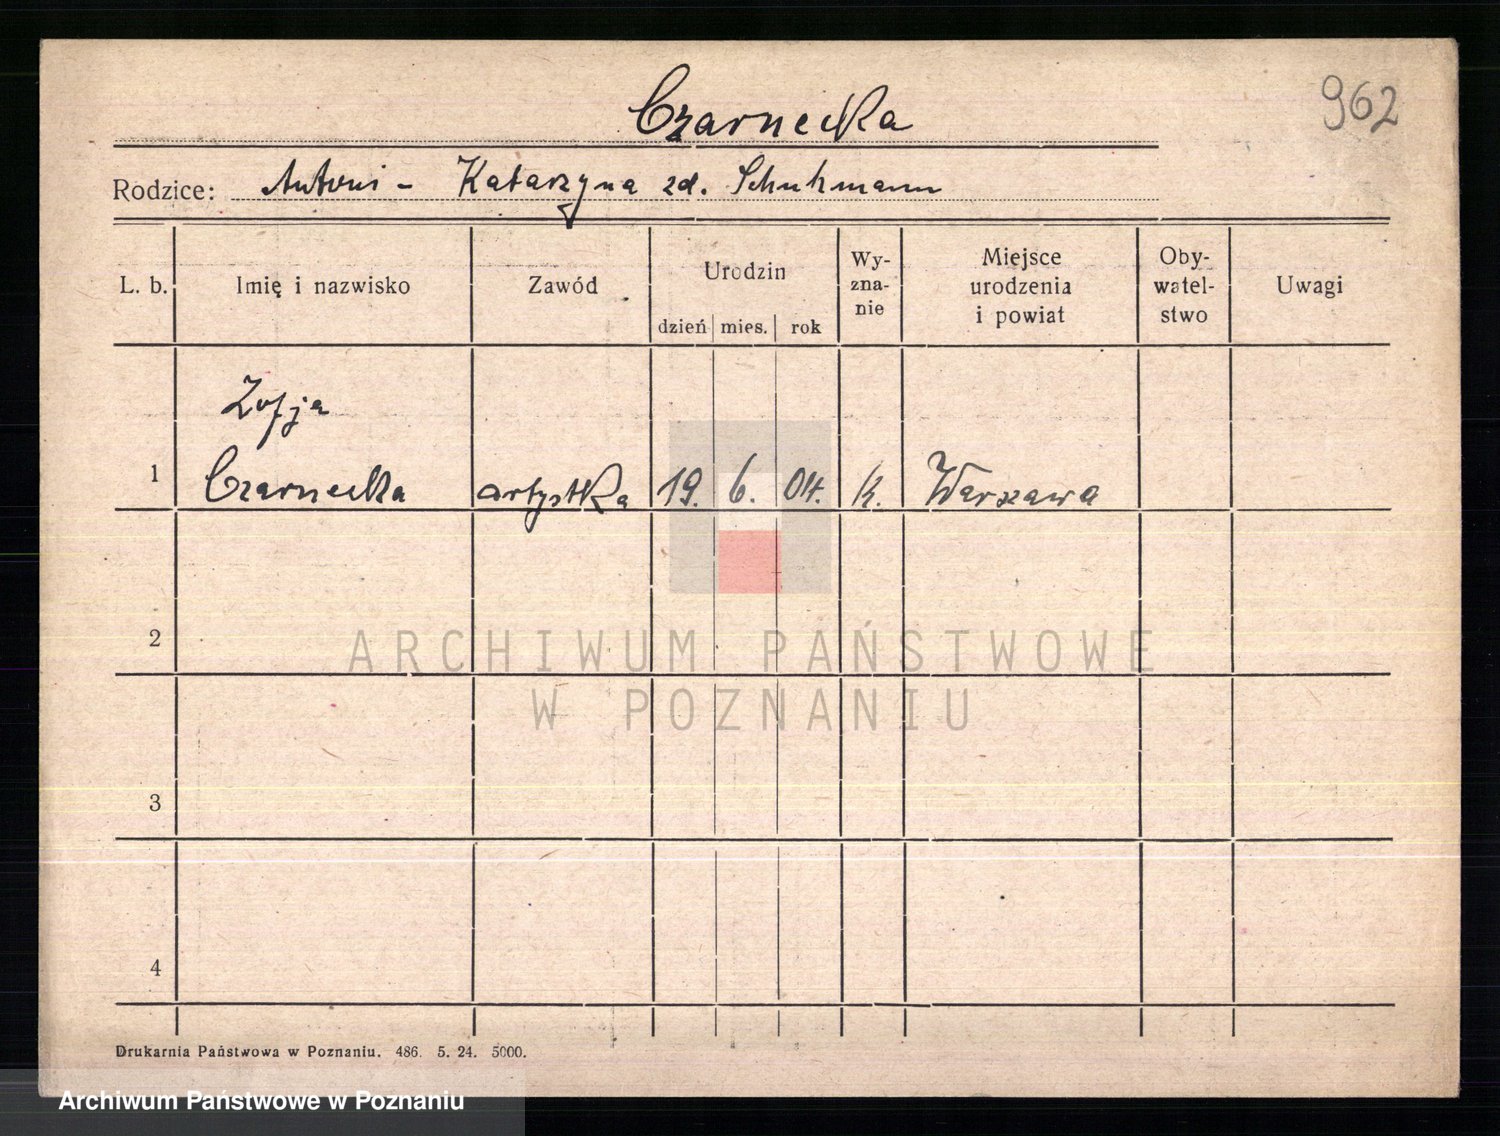 Czarnecka
962
Rodzice: Antoni - Katarzyna zd. Schuhmann
L. b. Imię i nazwisko Zawód Urodzin dzień mies. rok Wy-zna-nie Miejsce urodzenia i powiat Oby-watel-stwo Uwagi
Zofja
1 Czarnecka artystka 19. 6. 04. k. Warszawa
2
ARCHIWUM PAŃSTWOWE
W POZNANIU
3
4
Drukarnia Państwowa w Poznaniu. 486. 5. 24. 5000.
Archiwum Państwowe w Poznaniu